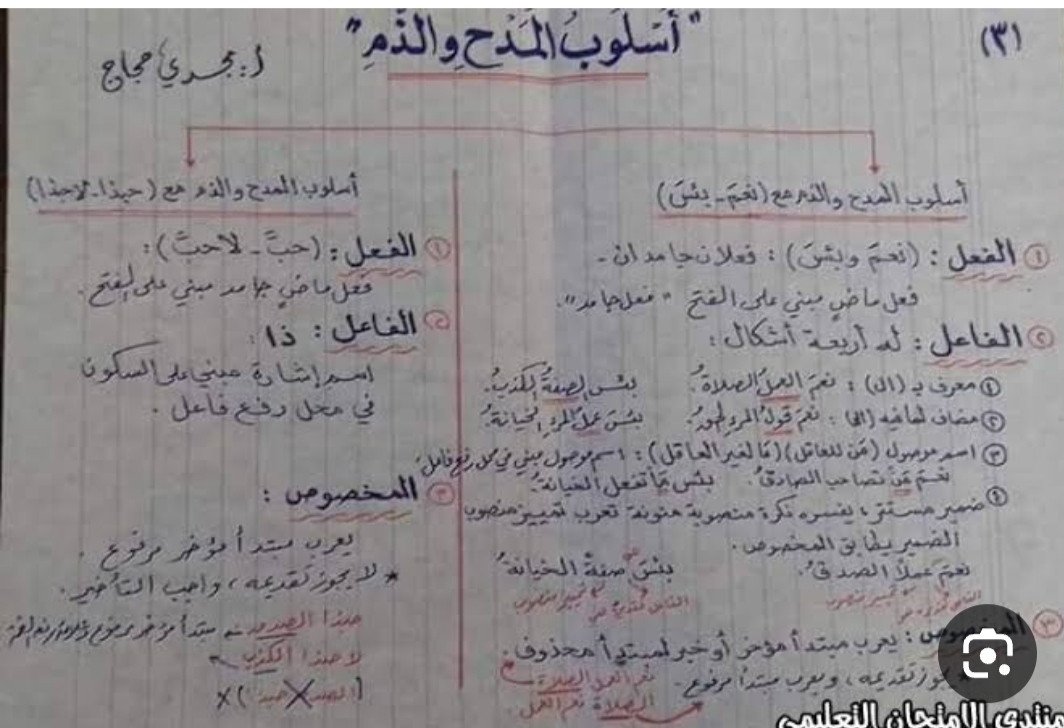 (٣)
"أسلوب المدح والذم"
أ: مجدي حجاج
أسلوب المدح والذم مع (نعم - بئس)
① الفعل : (نعم وبئس) : فعلان جامدان -
فعل ماض مبني على الفتح "فعل جامد".
② الفاعل : له أربعة أشكال :
① معرف بـ (ال) : نعم العمل الصلاة. بئس الصفة الكذب.
② مضاف لما فيه (ال) : نعم قول المرء بئس عمل المرء الخيانة.
③ اسم موصول (من للعاقل) (ما لغير العاقل) : اسم موصول مبني في محل رفع فاعل
نعم من تصاحب الصادق. بئس ما تفعل الخيانة.
④ ضمير مستتر، يفسره نكرة منصوبة منونة تعرب تمييز منصوب
الضمير يطابق المخصوص.
نعم عملا الصدق. بئس صفة الخيانة.
الفاعل تقديره هو تمييز منصوب الفاعل تقديره هي تمييز منصوب
③ المخصوص : يعرب مبتدأ مؤخر أو خبر لمبتدأ محذوف.
يجوز تقديمه ، ويعرب مبتدأ مرفوع. نعم العمل الصلاة
الصلاة نعم العمل.
أسلوب المدح والذم مع (حبذا - لا حبذا)
① الفعل : (حب - لا حب) :
فعل ماض جامد مبني على الفتح.
② الفاعل : ذا :
اسم إشارة مبني على السكون
في محل رفع فاعل.
③ المخصوص :
يعرب مبتدأ مؤخر مرفوع.
* لا يجوز تقديمه ، واجب التأخير.
حبذا الصدق مبتدأ مؤخر مرفوع وعلامة رفعه الضمة
لا حبذا الكذب
(الصدق حبذا) X
منتدى الامتحان التعليمى